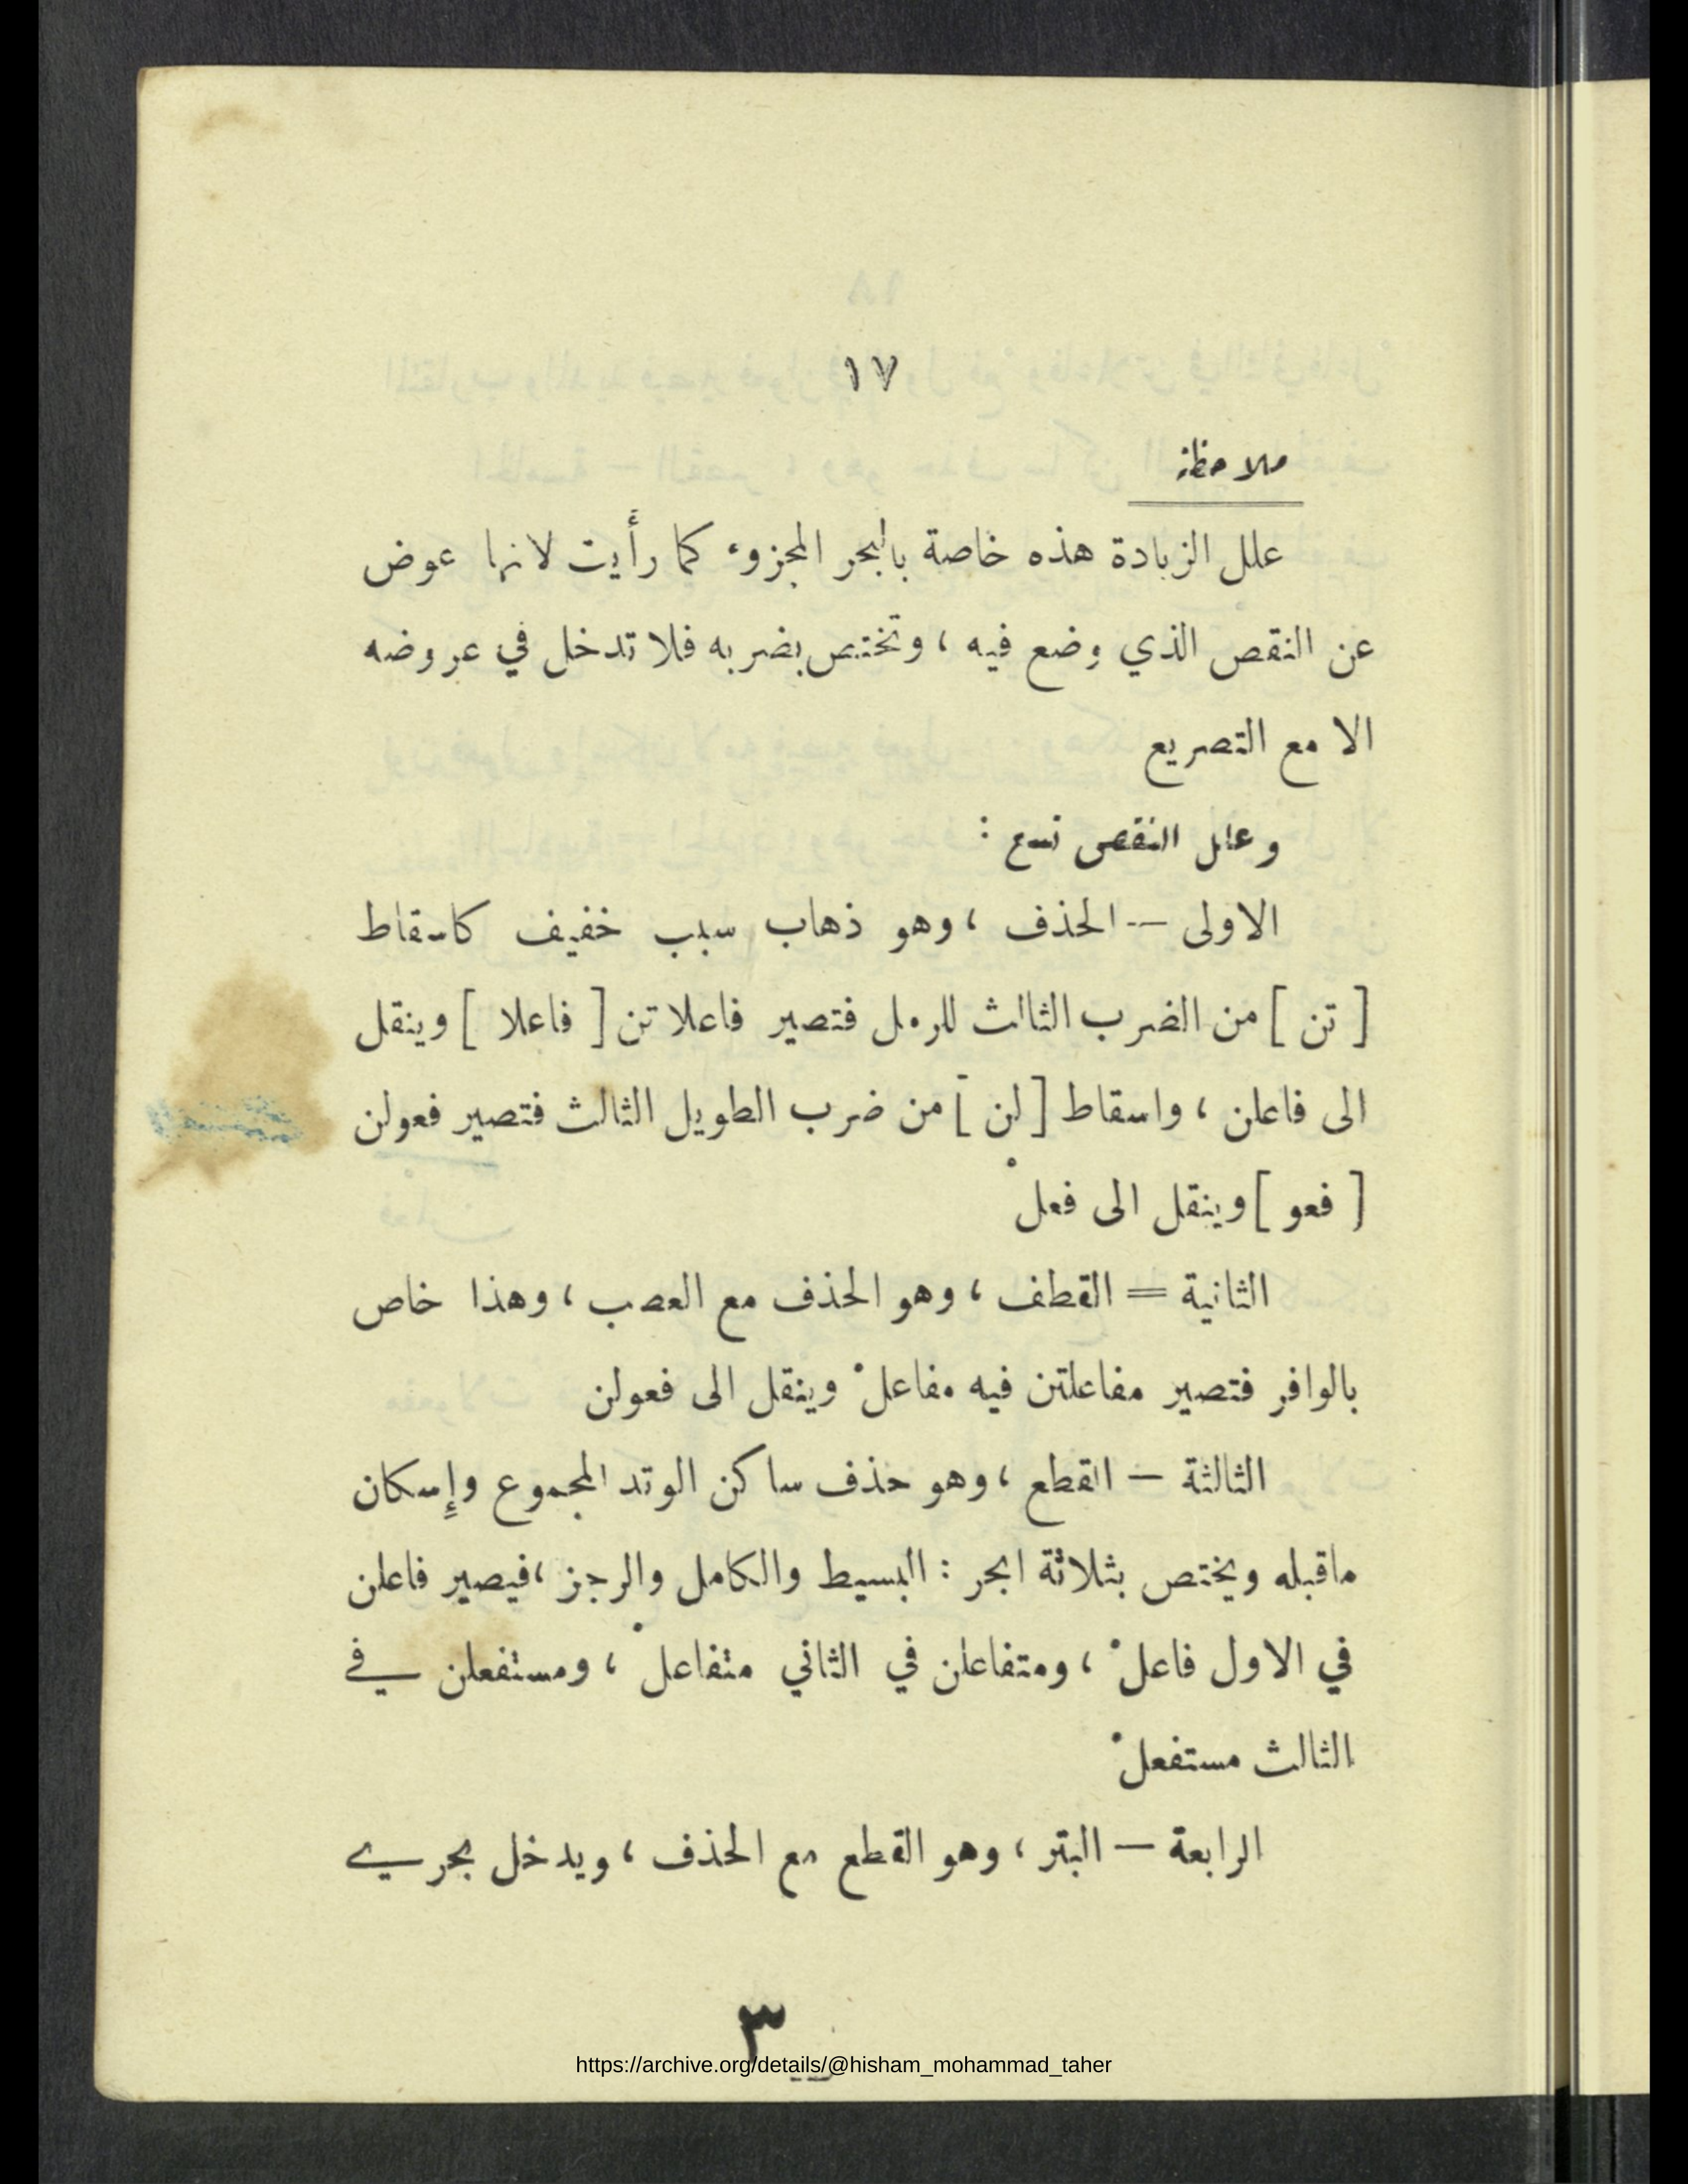 ١٧
ملاحظة
علل الزيادة هذه خاصة بالبحر المجزوء كما رأيت لانها عوض
عن النقص الذي وضع فيه ، وتختص بضربه فلا تدخل في عروضه
الا مع التصريع
وعلل النقص تسع :
الاولى -- الحذف ، وهو ذهاب سبب خفيف كاسقاط
[ تن ] من الضرب الثالث للرمل فتصير فاعلاتن [ فاعلا ] وينقل
الى فاعلن ، واسقاط [ لن ] من ضرب الطويل الثالث فتصير فعولن
[ فعو ] وينقل الى فعلْ
الثانية = القطف ، وهو الحذف مع العصب ، وهذا خاص
بالوافر فتصير مفاعلتن فيه مفاعلْ وينقل الى فعولن
الثالثة — القطع ، وهو حذف ساكن الوتد المجموع وإسكان
ماقبله ويختص بثلاثة ابحر : البسيط والكامل والرجز ،فيصير فاعلن
في الاول فاعلْ ، ومتفاعلن في الثاني متفاعلْ ، ومستفعلن في
الثالث مستفعلْ
الرابعة — البتر ، وهو القطع مع الحذف ، ويدخل بحري
٣
https://archive.org/details/@hisham_mohammad_taher